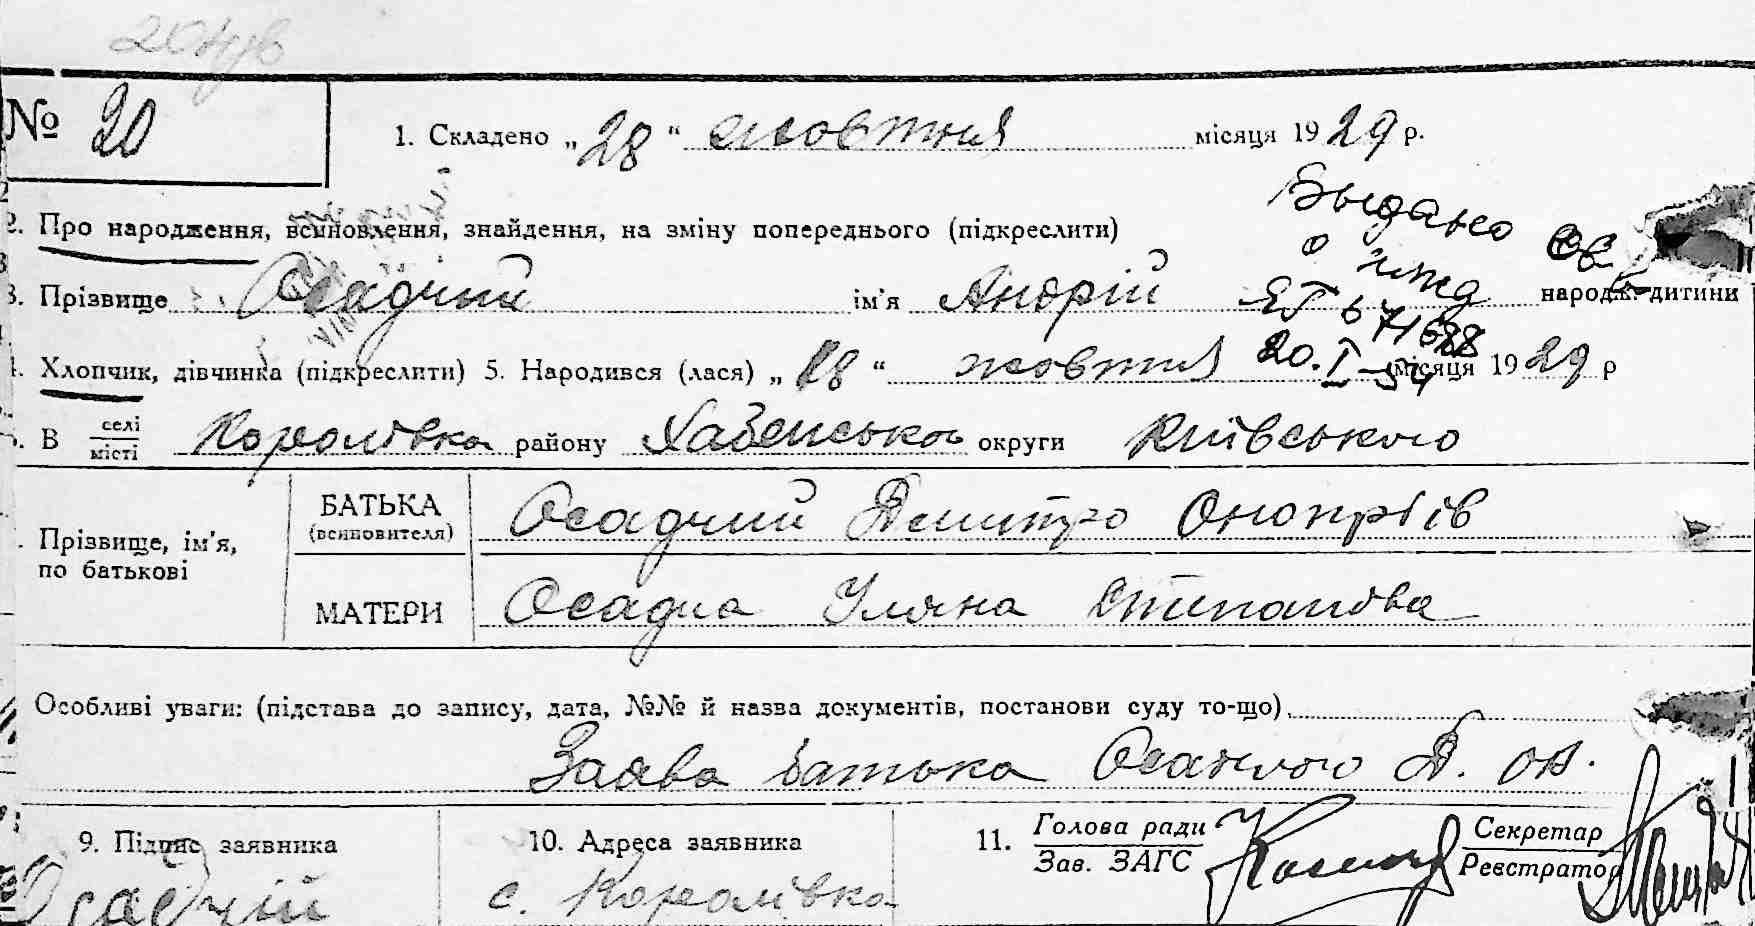 № 20
1. Складено „28“ жовтня місяця 1929 р.
2. Про народження, всиновлення, знайдення, на зміну попереднього (підкреслити)
Выдано св
о рожд
3. Прізвище Осадчий ім'я Андрій народж. дитини
20.I-54
4. Хлопчик, дівчинка (підкреслити) 5. Народився (лася) „18“ жовтня місяця 1929 р
В селі місті Королівка району Хабенсько округи Київського
Прізвище, ім'я, по батькові
БАТЬКА (всиновителя) Осадчий Дмитро Онопріїв
МАТЕРИ Осадча Уляна Степанова
Особливі уваги: (підстава до запису, дата, №№ й назва документів, постанови суду то-що)
Заява батька Осадчого Д. Он.
9. Підпис заявника 10. Адреса заявника 11. Голова ради Секретар
Зав. ЗАГС Реєстратор
Осадчій с. Королівка